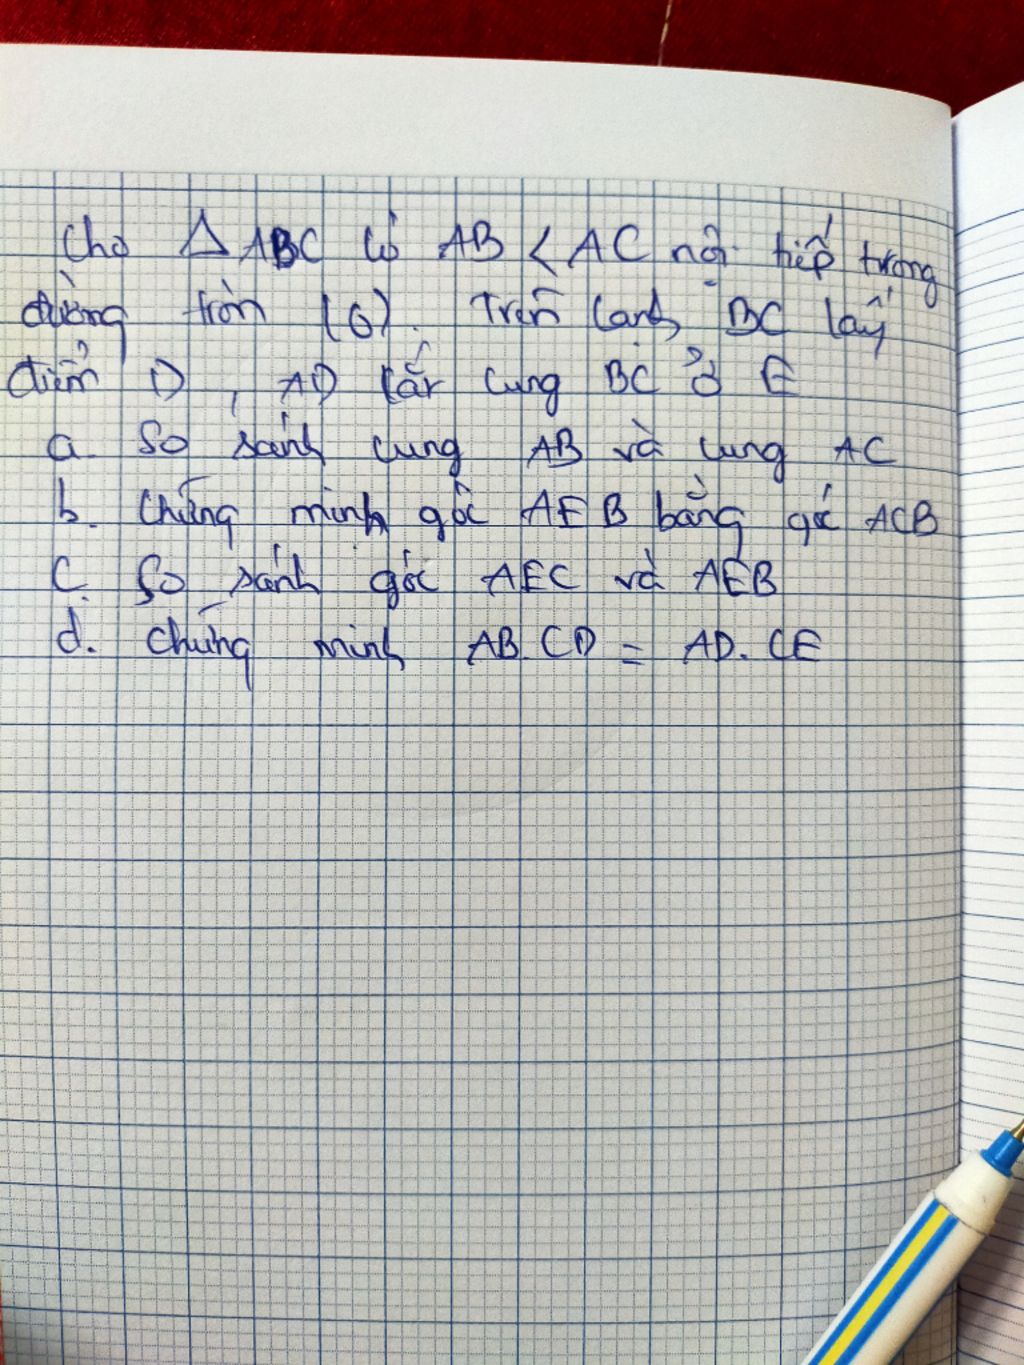 Cho △ ABC có AB < AC nội tiếp trong
đường tròn (O). Trên cạnh BC lấy
điểm D, AD cắt cung BC ở E
a. So sánh cung AB và cung AC
b. Chứng minh góc AEB bằng góc ACB
c. So sánh góc AEC và AEB
d. Chứng minh AB.CD = AD.CE